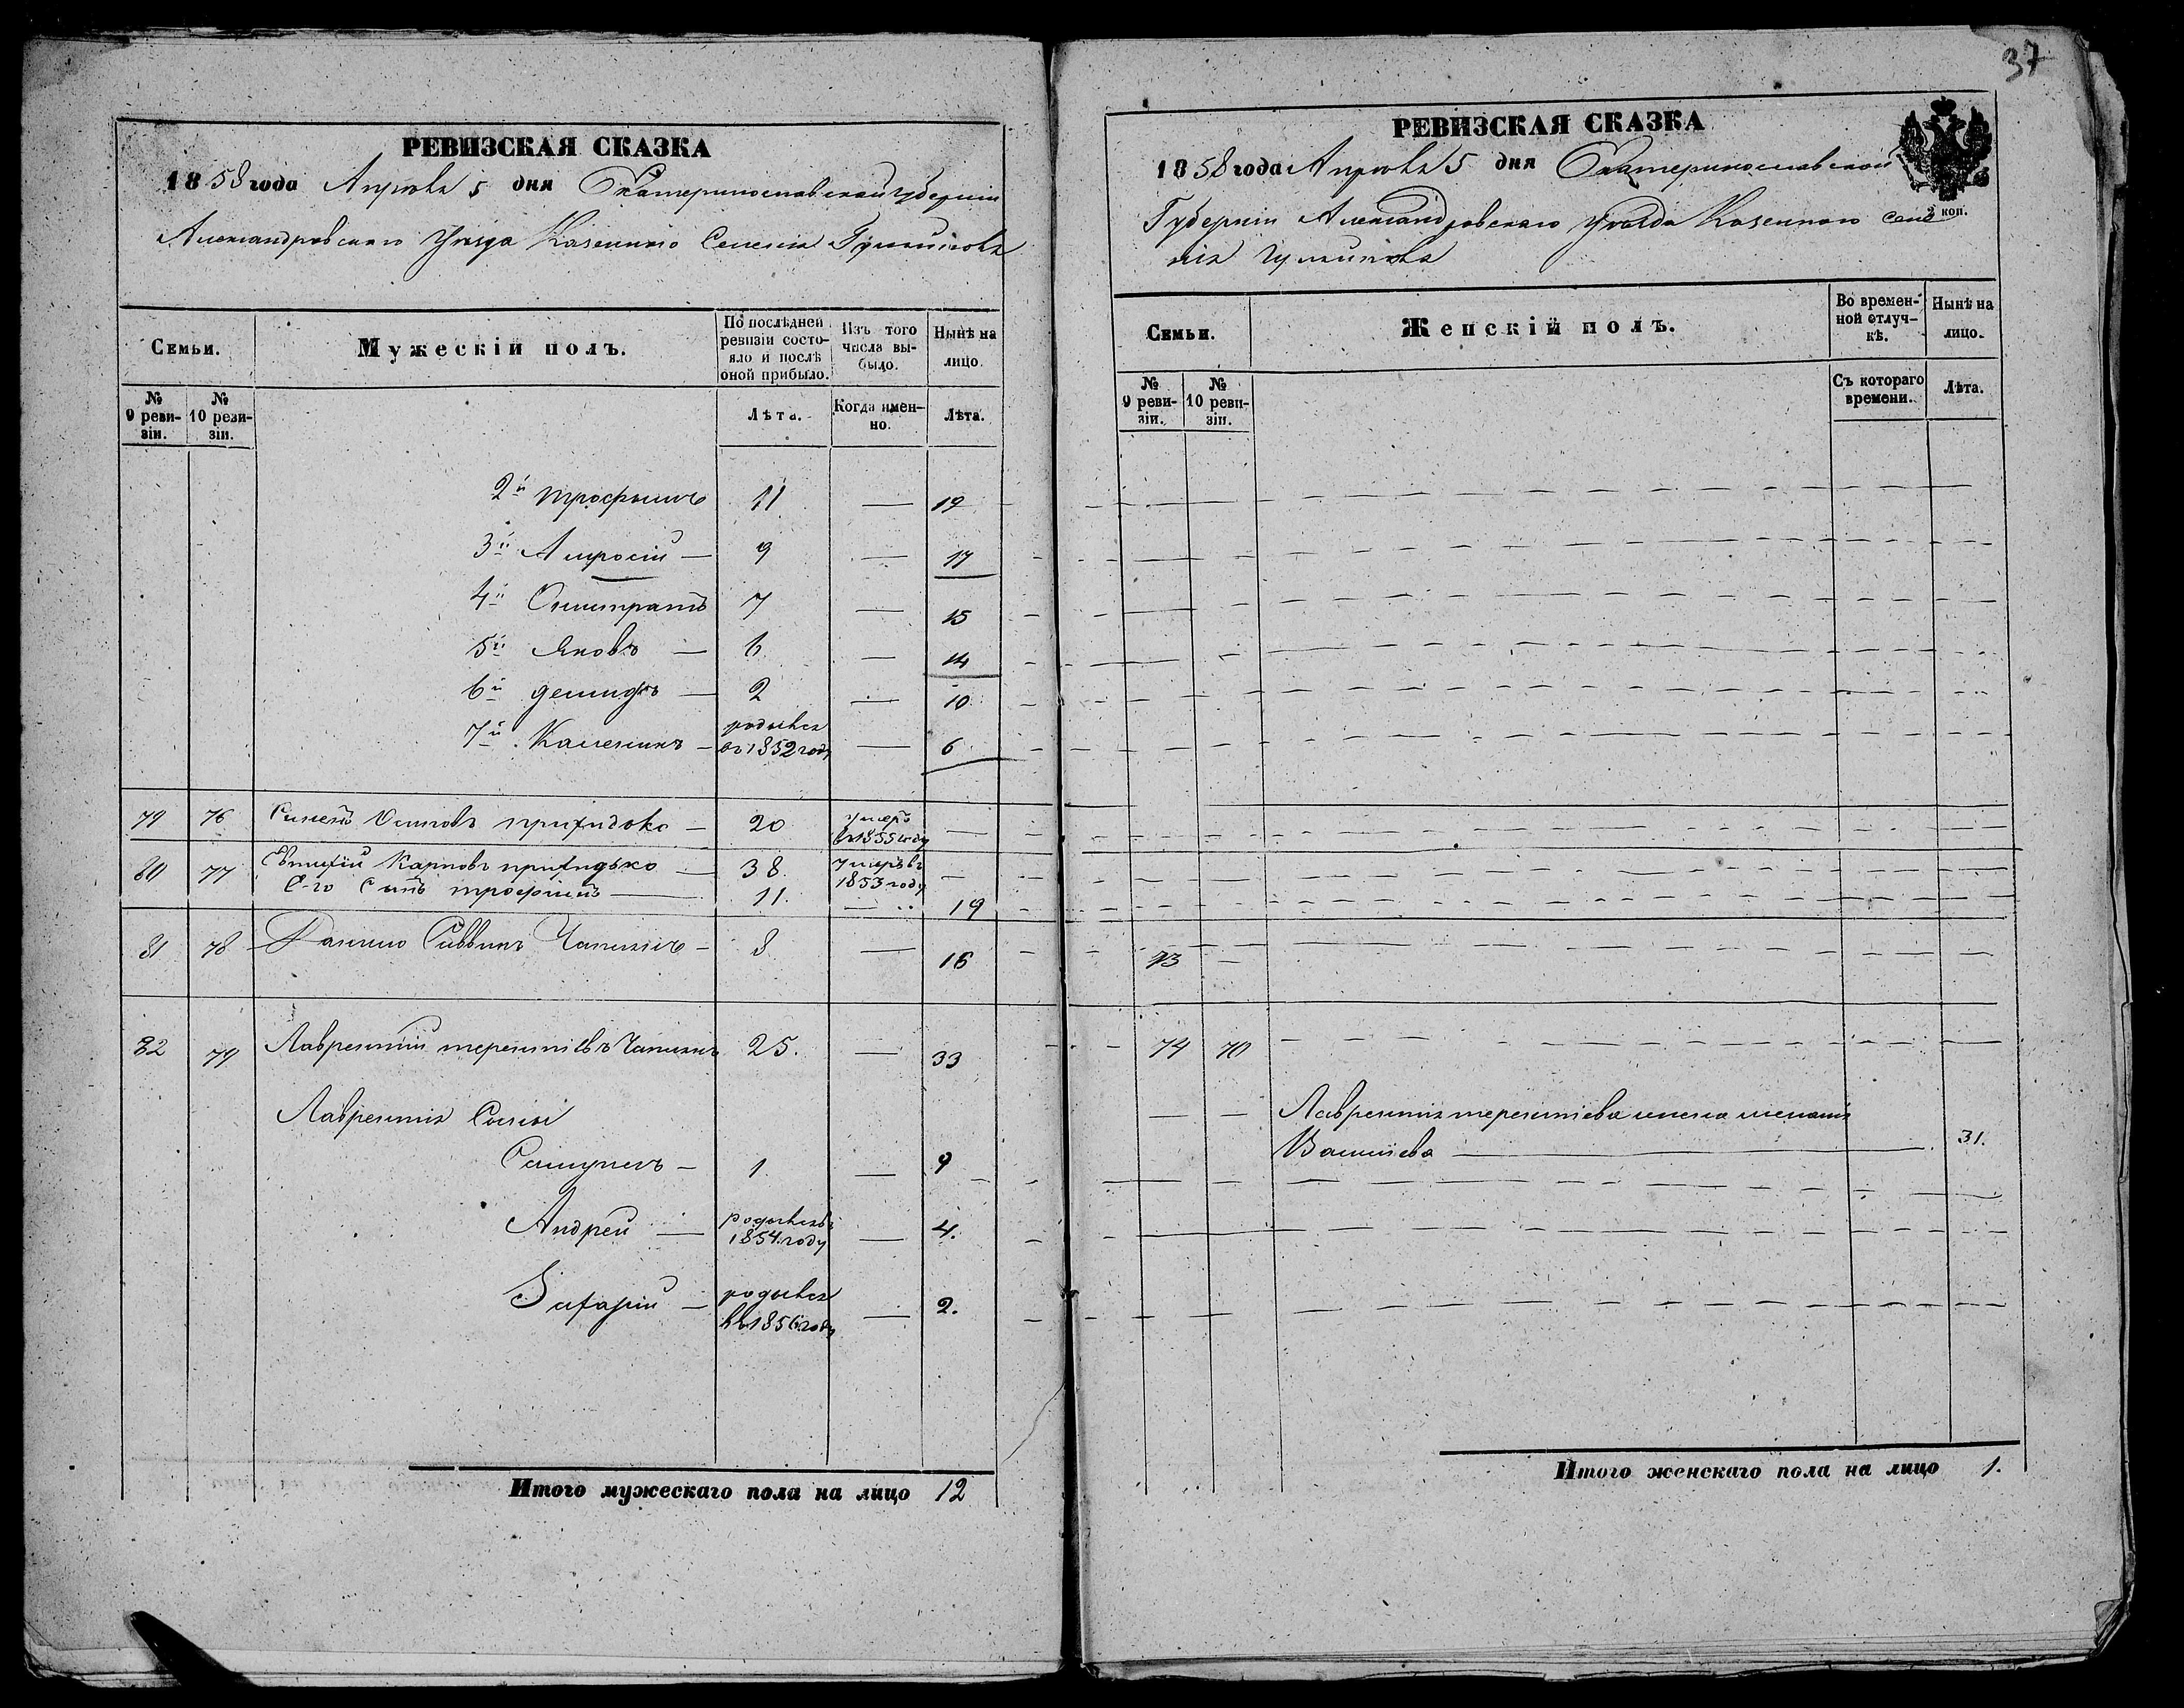 37
РЕВИЗСКАЯ СКАЗКА
1858 года Апрѣля 5 дня Екатеринославской губерніи
Александровскаго Уѣзда Казеннаго Селенія
Семьи.
Мужескій полъ.
По послѣдней ревизіи состояло и послѣ оной прибыло.
Изъ того числа выбыло.
Нынѣ на лицо.
№ 9 ревизіи.
№ 10 ревизіи.
Лѣта.
Когда именно.
Лѣта.
2й Трофымъ 11 — 19
3й Амросій — 9 — 17
4й 7 — 15
5й Яковъ — 6 — 14
6й Демидъ — 2 — 10
7й — родывся въ 1852 году — 6
79 76 Осиповъ Прихидько — 20 умеръ въ 1855 году —
80 77 Евтихій Карповъ Прихидько — 38 умеръ въ 1853 году —
Его Сынъ Трофимъ — 11. — 19
81 78 Данило Саввинъ — 8 — 16
82 79 Лаврентій Терентіевъ 25. — 33
Лаврентія Сыны
Самуилъ — 1. — 9
Андрей — родывся въ 1854 году — 4.
Захарій — родывся въ 1856 году — 2.
Итого мужескаго пола на лицо 12
РЕВИЗСКАЯ СКАЗКА
1858 года Апрѣля 5 дня Екатеринославской
Губерніи Александровскаго Уѣзда Казеннаго Селе
нія
2 коп.
Семьи.
Женскій полъ.
Во временной отлучкѣ.
Нынѣ на лицо.
№ 9 ревизіи.
№ 10 ревизіи.
Съ котораго времени.
Лѣта.
73 —
74 70
— — Лаврентія Терентіева жена
31.
Итого женскаго пола на лицо 1.